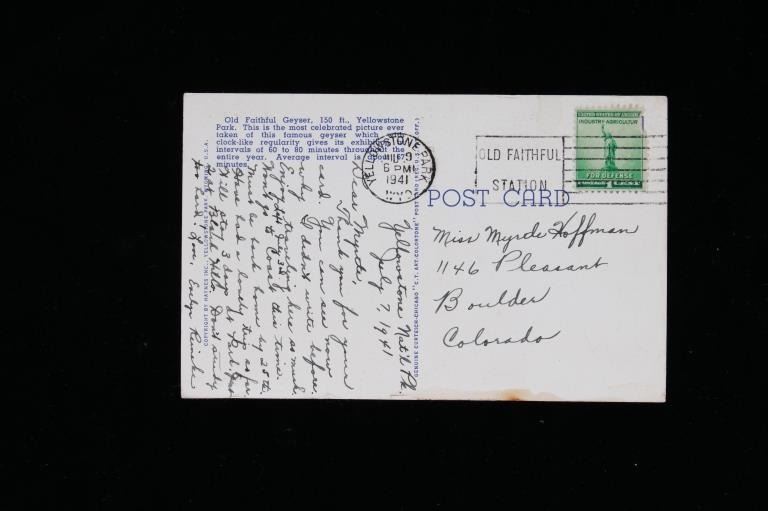 Old Faithful Geyser, 150 ft., Yellowstone
Park. This is the most celebrated picture ever
taken of this famous geyser which
clock-like regularity gives its exhibition
intervals of 60 to 80 minutes throughout the
entire year. Average interval is about 67
minutes.
COPYRIGHT BY HAYNES INC., YELLOWSTONE PARK, WYOMING, U.S.A.
GENUINE CURTEICH-CHICAGO "C.T. ART-COLORTONE" POST CARD (REG. U.S. PAT. OFF.)
YELLOWSTONE PARK
JUL 9
6 PM
1941
WYO
OLD FAITHFUL
STATION
UNITED STATES OF AMERICA
INDUSTRY-AGRICULTURE
FOR DEFENSE
1¢
POST CARD
Yellowstone Nat'l Pk.
July 7, 1941
Dear Myrtle,
Thank you for your
card. You can see now
why I didn't write before.
Enjoy traveling here so much.
Left July 3rd
Won't go to Coast this time.
Must be back home by 25th.
Have had a lovely trip so far.
Will stay 3 days
Black Hills. Don't study
too hard. Love, Evelyn Reinke
Miss Myrtle Hoffman
1146 Pleasant
Boulder
Colorado